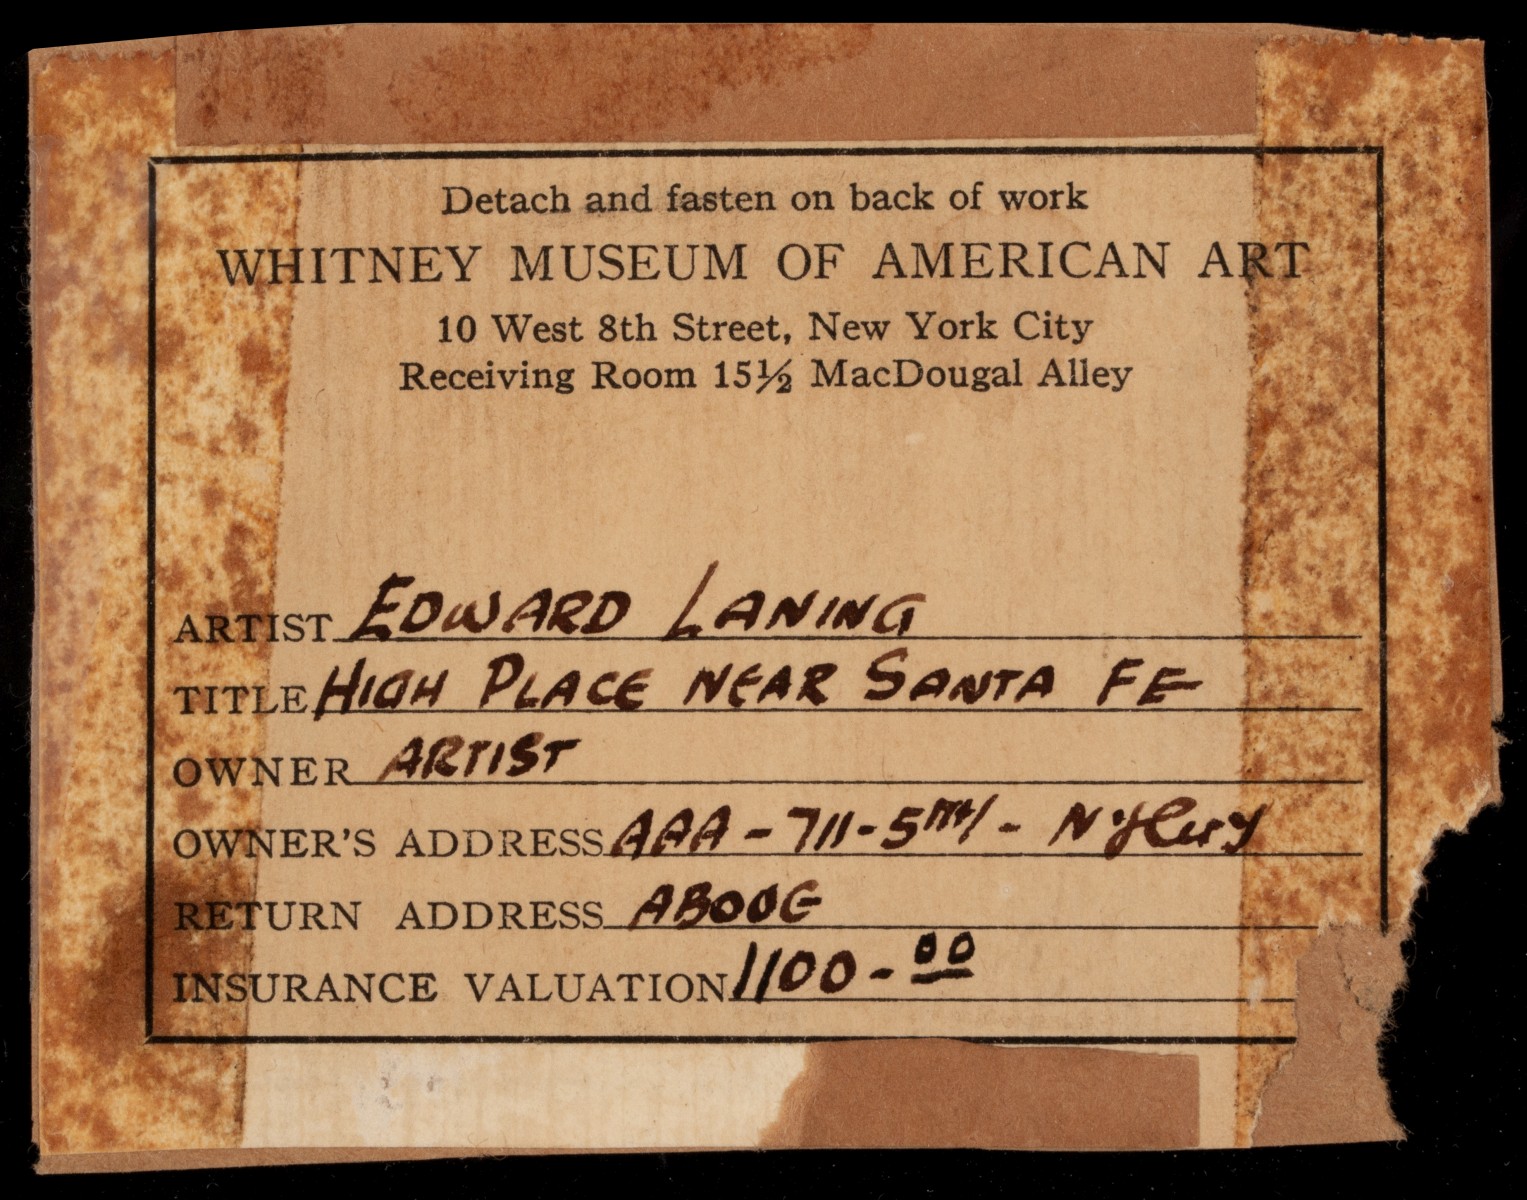 Detach and fasten on back of work
WHITNEY MUSEUM OF AMERICAN ART
10 West 8th Street, New York City
Receiving Room 15½ MacDougal Alley
ARTIST EDWARD LANING
TITLE HIGH PLACE NEAR SANTA FE
OWNER ARTIST
OWNER'S ADDRESS AAA - 711 - 5TH -
RETURN ADDRESS ABOVE
INSURANCE VALUATION 1100 - 00